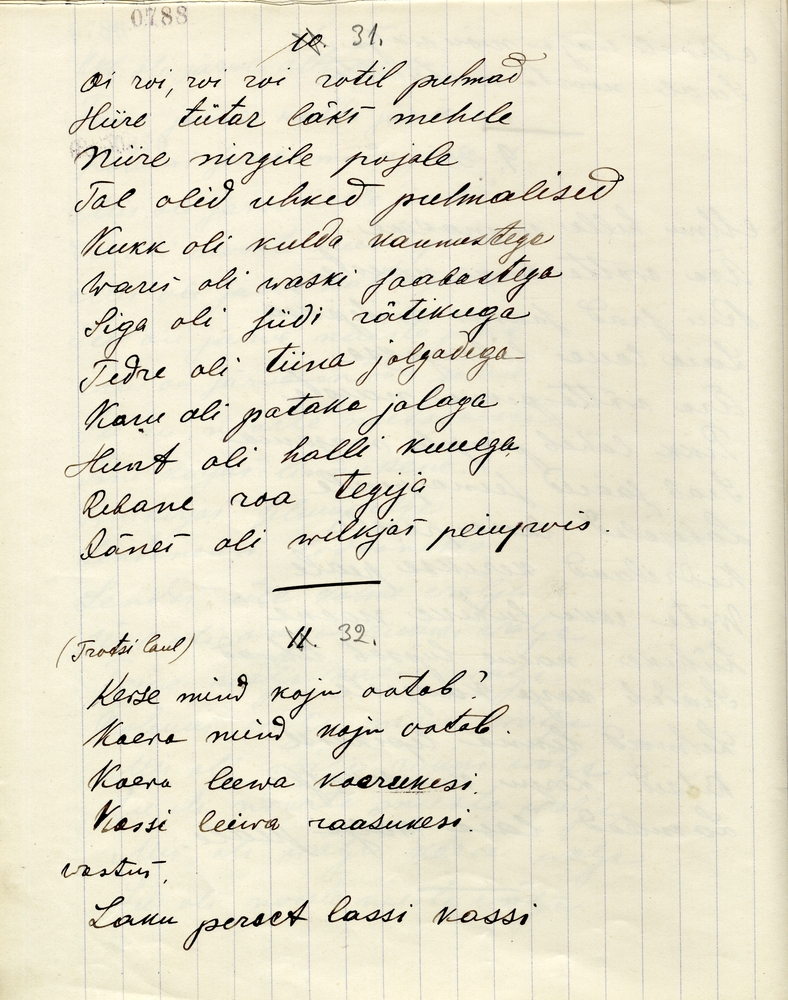 0788
10. 31.
Oi roi, roi roi rotil pulmad
Hiire tütar läks mehele
Niire nirgile pojale
Tal olid uhked pulmalised
Kukk oli kulda kannustega
Wares oli waski saabastega
Siga oli siidi rätikuga
Tedre oli tiina jalgadega
Karu oli pataka jalaga
Hunt oli halli kuuega
Rebane roa tegija
Jänes oli wilkjas peiupois.
(Trotsi laul) 11. 32.
Kesse mind koju ootab?
Koera mind koju ootab.
Koera leewa koorukesi.
Kassi leiwa raasukesi.
wastus,
Laku perset lassi kassi